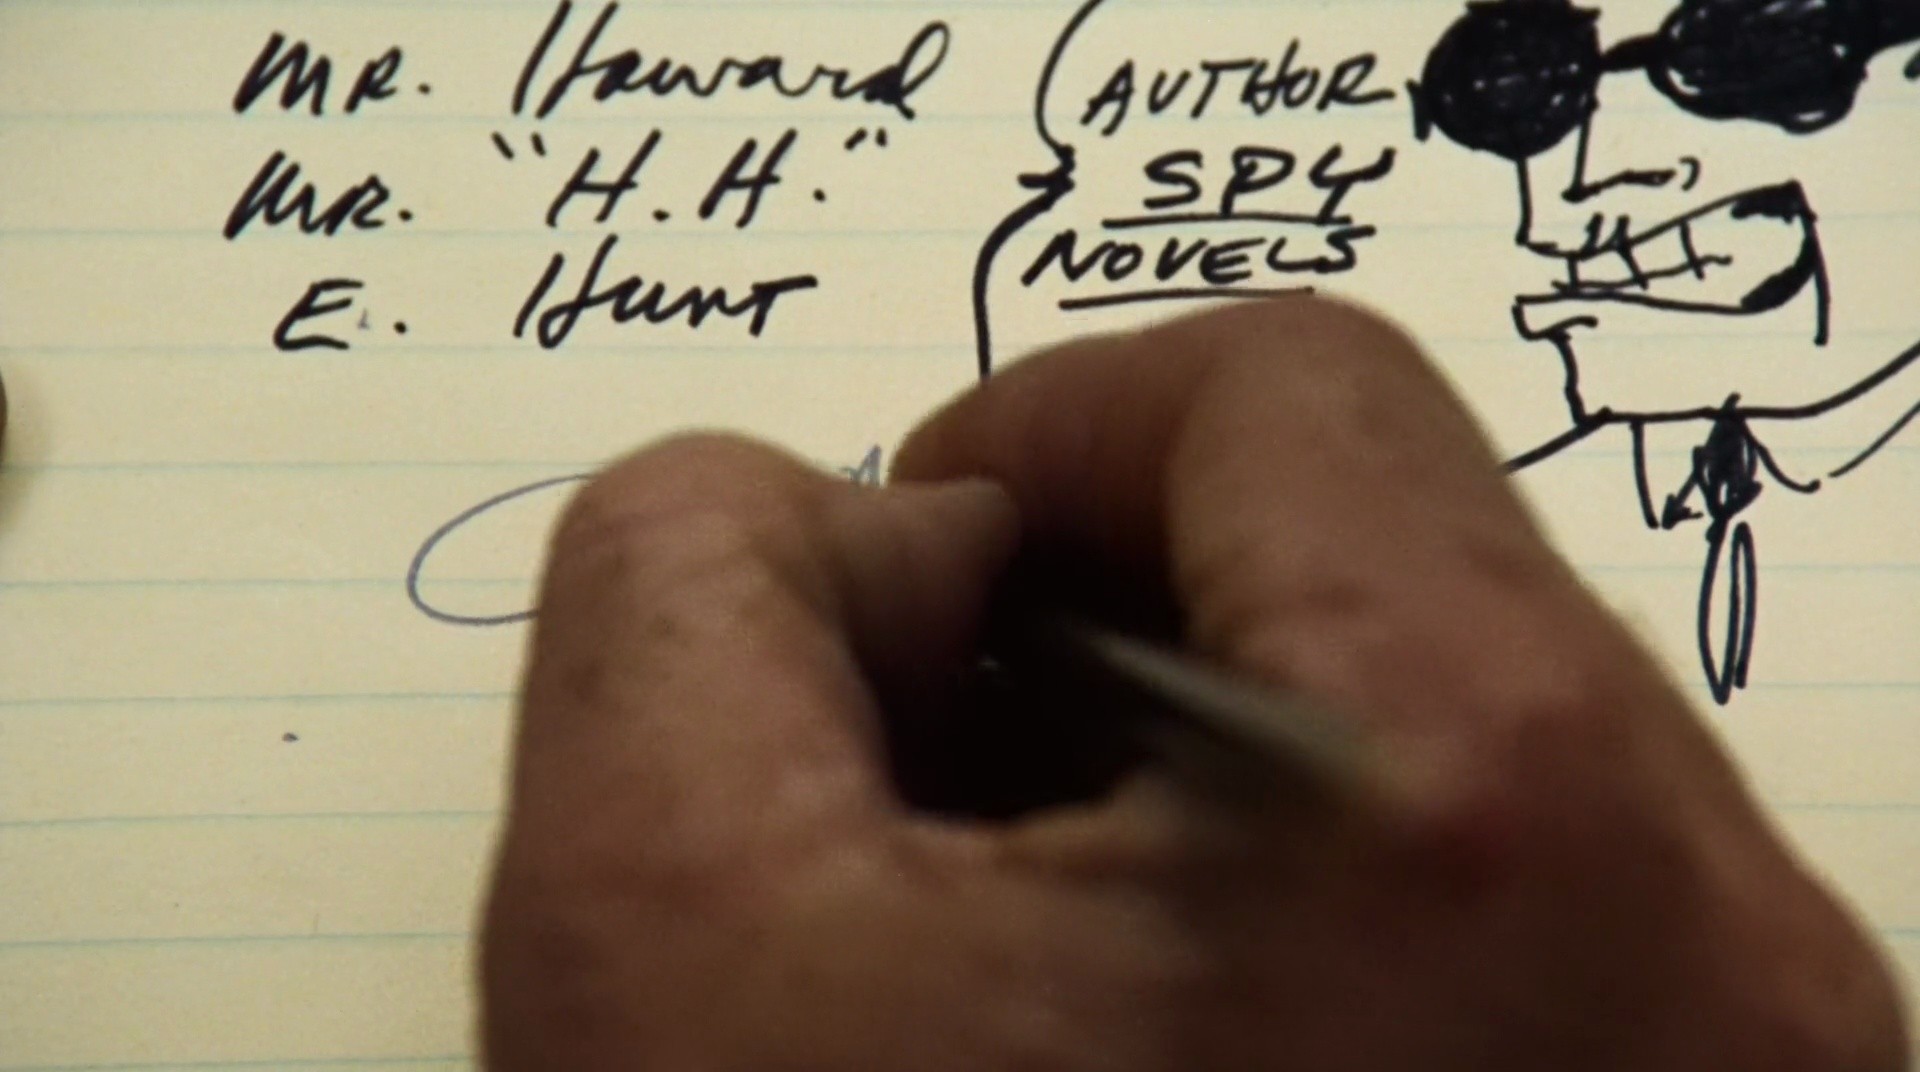 MR. Howard
MR. "H.H."
E. Hunt
AUTHOR
SPY
NOVELS